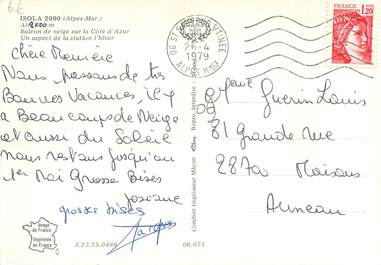 6€
ISOLA 2000 (Alpes-Mar.)
Alt. 2000 m
Balcon de neige sur la Côte d'Azur
Un aspect de la station l'hiver
Chère
Nous passons de très
Bonnes Vacances, il y
a Beaucoups de Neige
et aussi du Soleil
nous restons jusqu'au
1er Mai Grosse Bises
Josiane
grosses bises
Jacques
Image de France
Imprimée en France
3.27.75.0486
06.073
Combier Imprimeur Mâcon
Repro. Interdite
06 ST
26-4
1979
FRANCE
1,20
Guérin Louis
81 Grande rue
28700 Maisons
Auneau